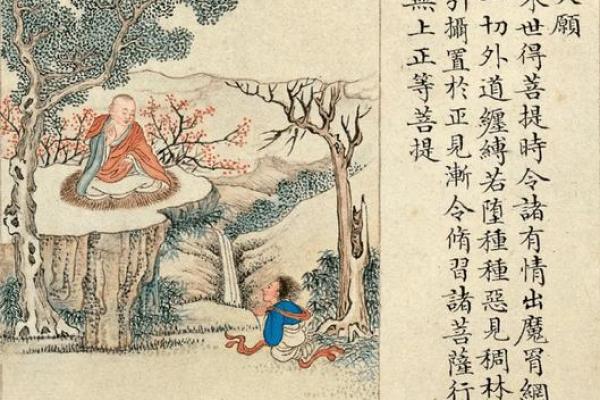 大願
來世得菩提時令諸有情出魔罥網
一切外道纏縛若墮種種惡見稠林
引攝置於正見漸令脩習諸菩薩行
無上正等菩提